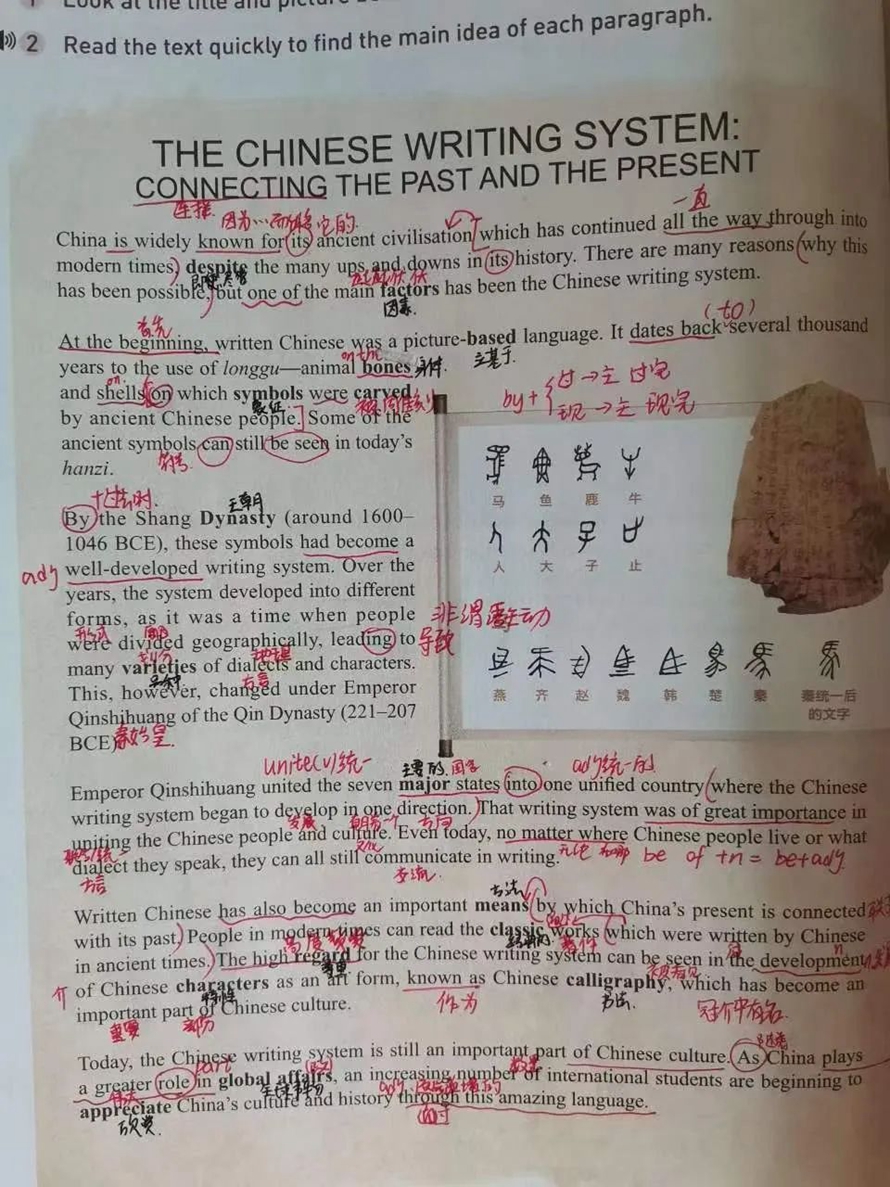 2 Read the text quickly to find the main idea of each paragraph.
THE CHINESE WRITING SYSTEM:
CONNECTING THE PAST AND THE PRESENT
连接 因为…而 它的 一直
China is widely known for its ancient civilisation which has continued all the way through into
modern times, despite the many ups and downs in its history. There are many reasons why this
has been possible, but one of the main factors has been the Chinese writing system.
因素
首先 (to)
At the beginning, written Chinese was a picture-based language. It dates back several thousand
years to the use of longgu—animal bones
and shells on which symbols were carved
by ancient Chinese people. Some of the
ancient symbols can still be seen in today's
hanzi.
符号
by+ 过→主 过完
现→主 现完
马 鱼 鹿 牛
人 大 子 止
燕 齐 赵 魏 韩 楚 秦 秦统一后
的文字
By the Shang Dynasty (around 1600–
1046 BCE), these symbols had become a
adj well-developed writing system. Over the
years, the system developed into different
forms, as it was a time when people
were divided geographically, leading to
导致
many varieties of dialects and characters.
方言
This, however, changed under Emperor
Qinshihuang of the Qin Dynasty (221–207
BCE). 秦始皇.
unite(v)统一 主要的 国家 adj统一的
Emperor Qinshihuang united the seven major states into one unified country where the Chinese
writing system began to develop in one direction. That writing system was of great importance in
发展 方向
uniting the Chinese people and culture. Even today, no matter where Chinese people live or what
dialect they speak, they can all still communicate in writing. be of +n = be+adj
方言 交流.
方法
Written Chinese has also become an important means by which China's present is connected
with its past. People in modern times can read the classic works which were written by Chinese
in ancient times. The high regard for the Chinese writing system can be seen in the development
of Chinese characters as an art form, known as Chinese calligraphy, which has become an
作为 书法.
important part of Chinese culture.
重要 部分
Today, the Chinese writing system is still an important part of Chinese culture. As China plays
part
a greater role in global affairs, an increasing number of international students are beginning to
appreciate China's culture and history through this amazing language.
欣赏.